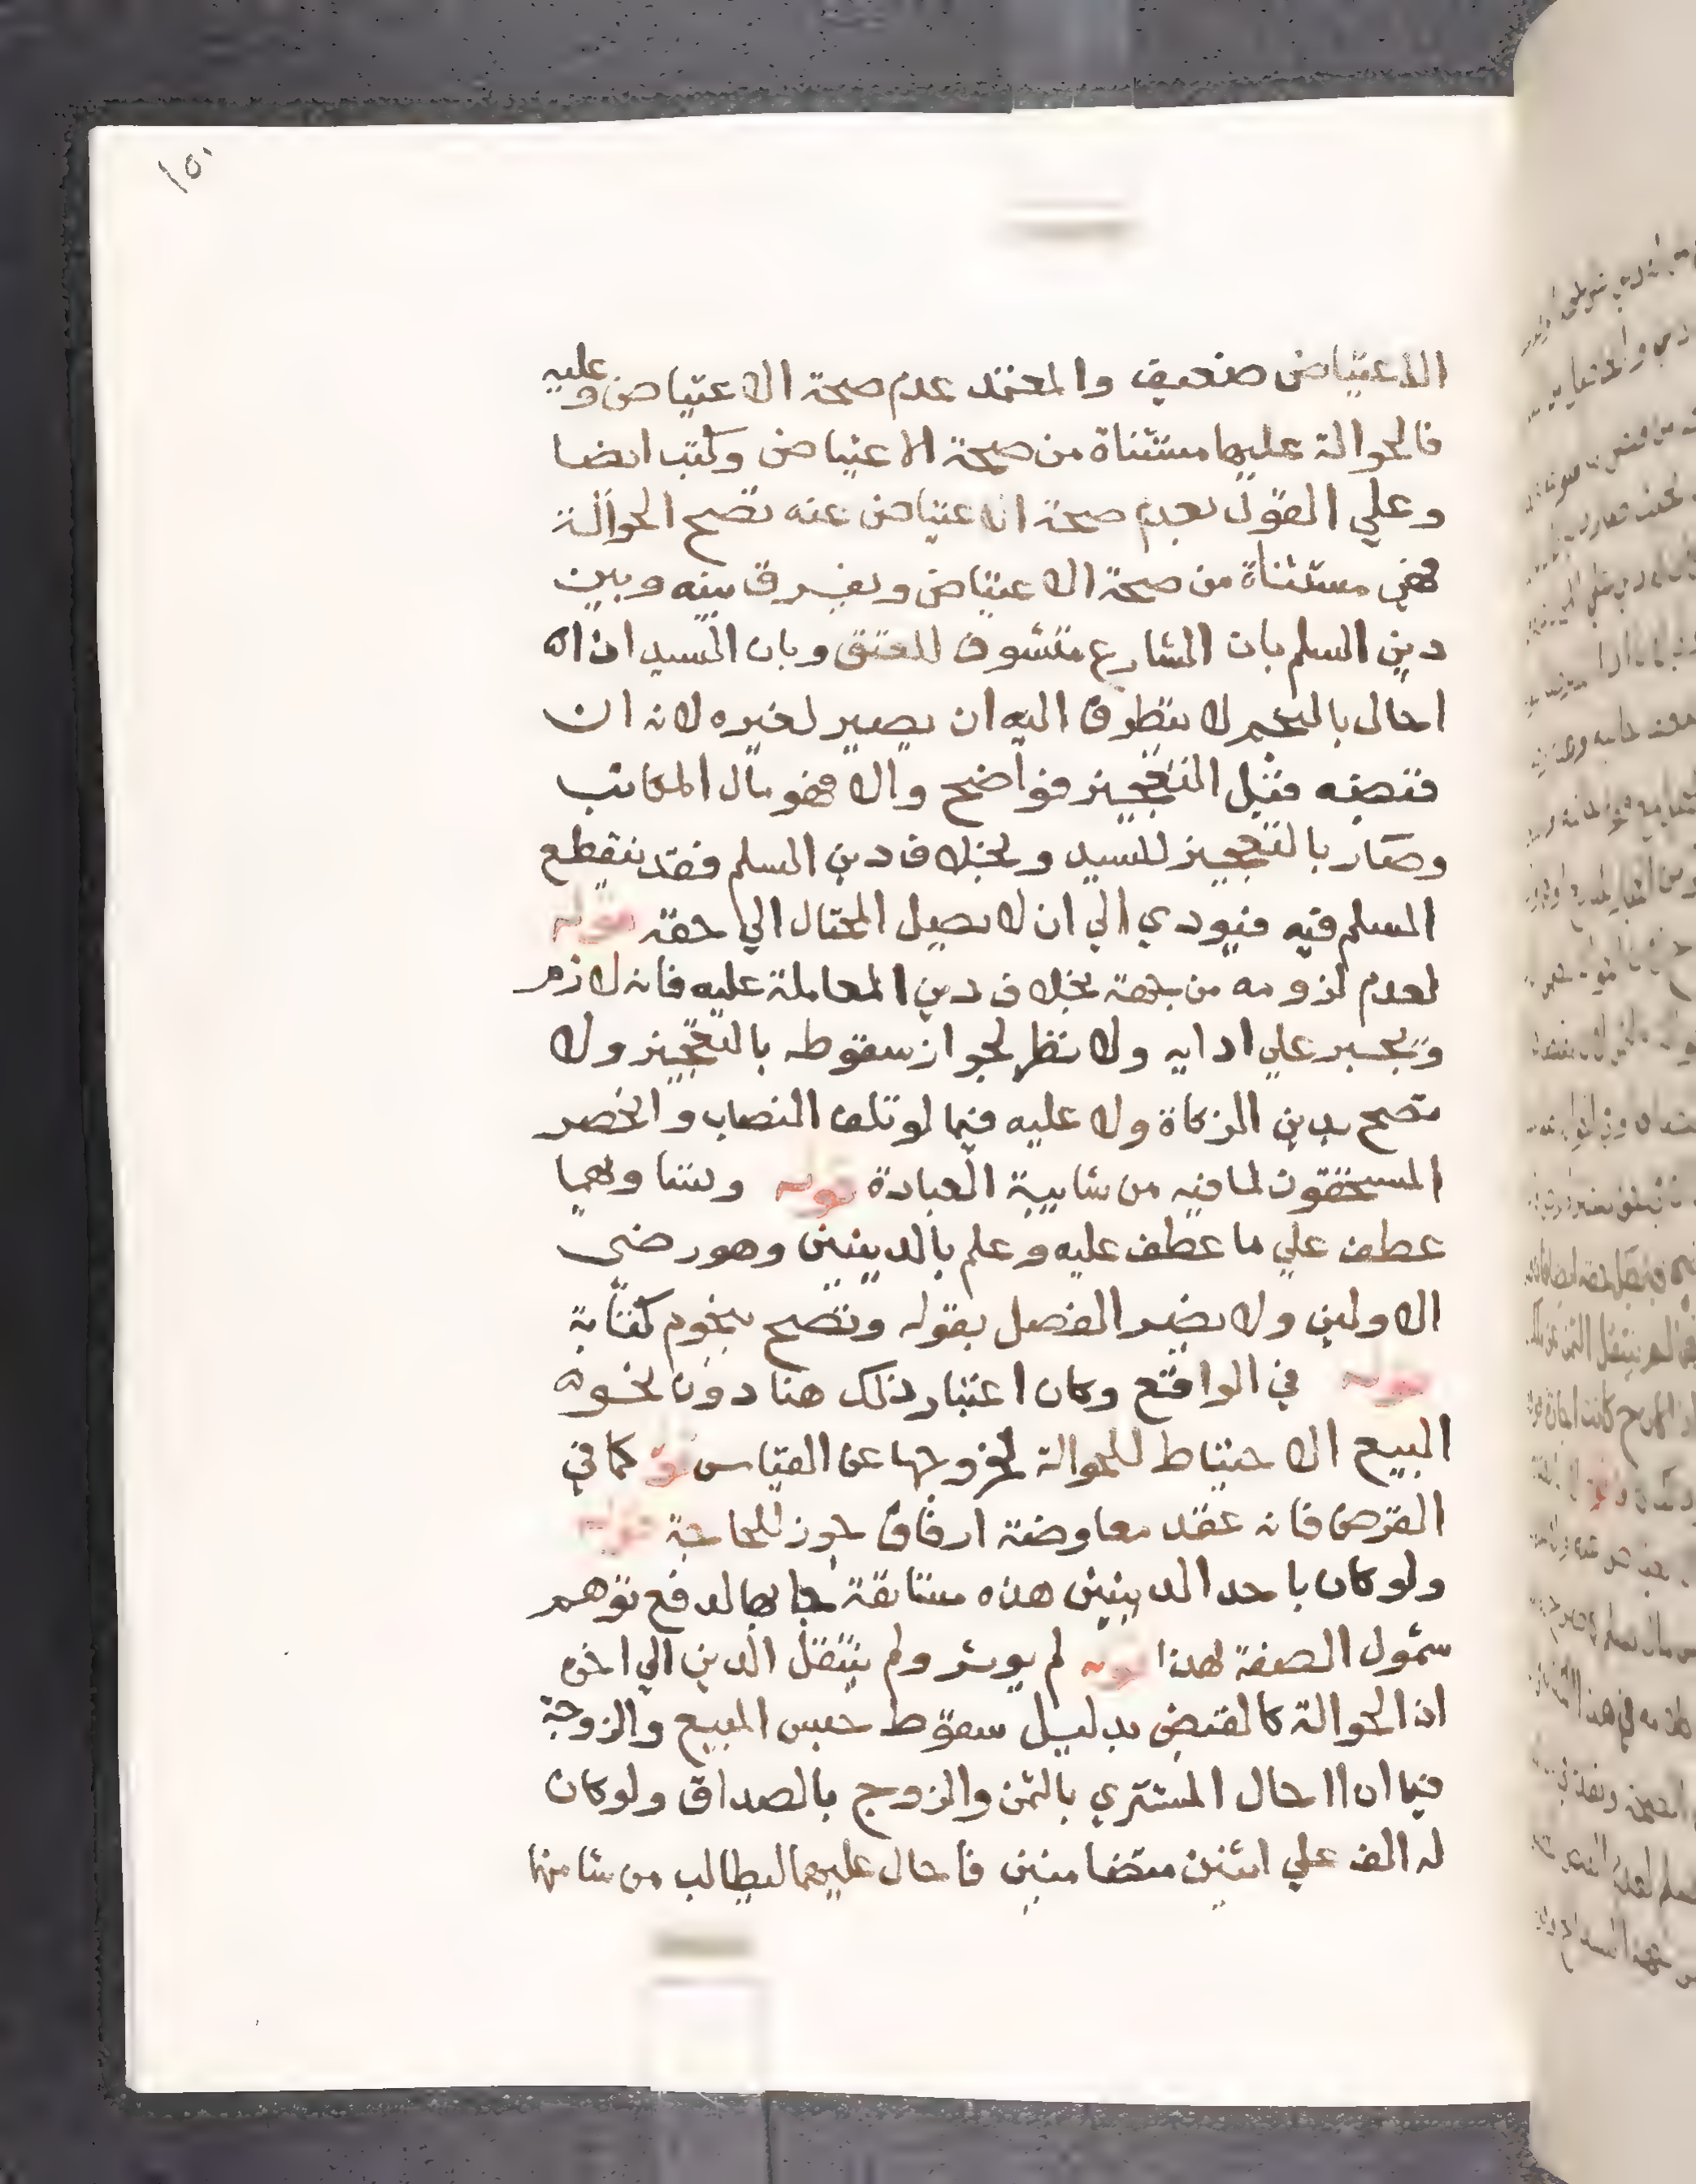 ١٥٠
الاعتياض ضعيف والمعتمد عدم صحة الاعتياض وعليه
فالحوالة عليها مستثناة من صحة الاعتياض وكتب ايضا
وعلي القول بعدم صحة الاعتياض عنه تصح الحوالة
فهي مستثناة من صحة الاعتياض ويفرق بينه وبين
دين السلم بان الشارع متشوف للعتق وبان السيد اذا
احال بالنجم لا يتطرق اليه ان يصير لغيره لانه ان
قبضه قبل التعجيز فواضح والا فهو مال المكاتب
وصار بالتعجيز للسيد وبخلاف دين السلم فقد ينقطع
المسلم فيه فيودي الي ان لا يصل المحتال الي حقه قوله
لعدم لزومه من جهته بخلاف دين المعاملة عليه فانه لازم
ويجبر علي ادايه ولا نظر لجواز سقوطه بالتعجيز ولا
تصح بدين الزكاة ولا عليه فيما لو تلف النصاب وانحصر
المستحقون لما فيه من شايبة العبادة قوله وتساويهما
عطف علي ما عطف عليه وعلم بالدينين وهو رضي
الاولين ولا يضير الفصل بقوله وتصح بنجوم كتابة
قوله في الواقع وكان اعتبار ذلك هنا دون نحو
البيع الاحتياط للحوالة لخروجها عن القياس قو كما في
القرض فانه عقد معاوضة ارفاق جوز للحاجة قوله
ولو كان باحد الدينين هذه مسٔالة جا بها لدفع توهم
شمول الصفة لهذا قوله لم يوثر ولم ينتقل الدين الي اخره
اذ الحوالة كالقبض بدليل سقوط حبس المبيع والزوجة
فيما اذا احال المشتري بالثمن والزوج بالصداق ولو كان
له الف علي اثنين متضامنين فاحال عليهما ليطالب من شا منهما